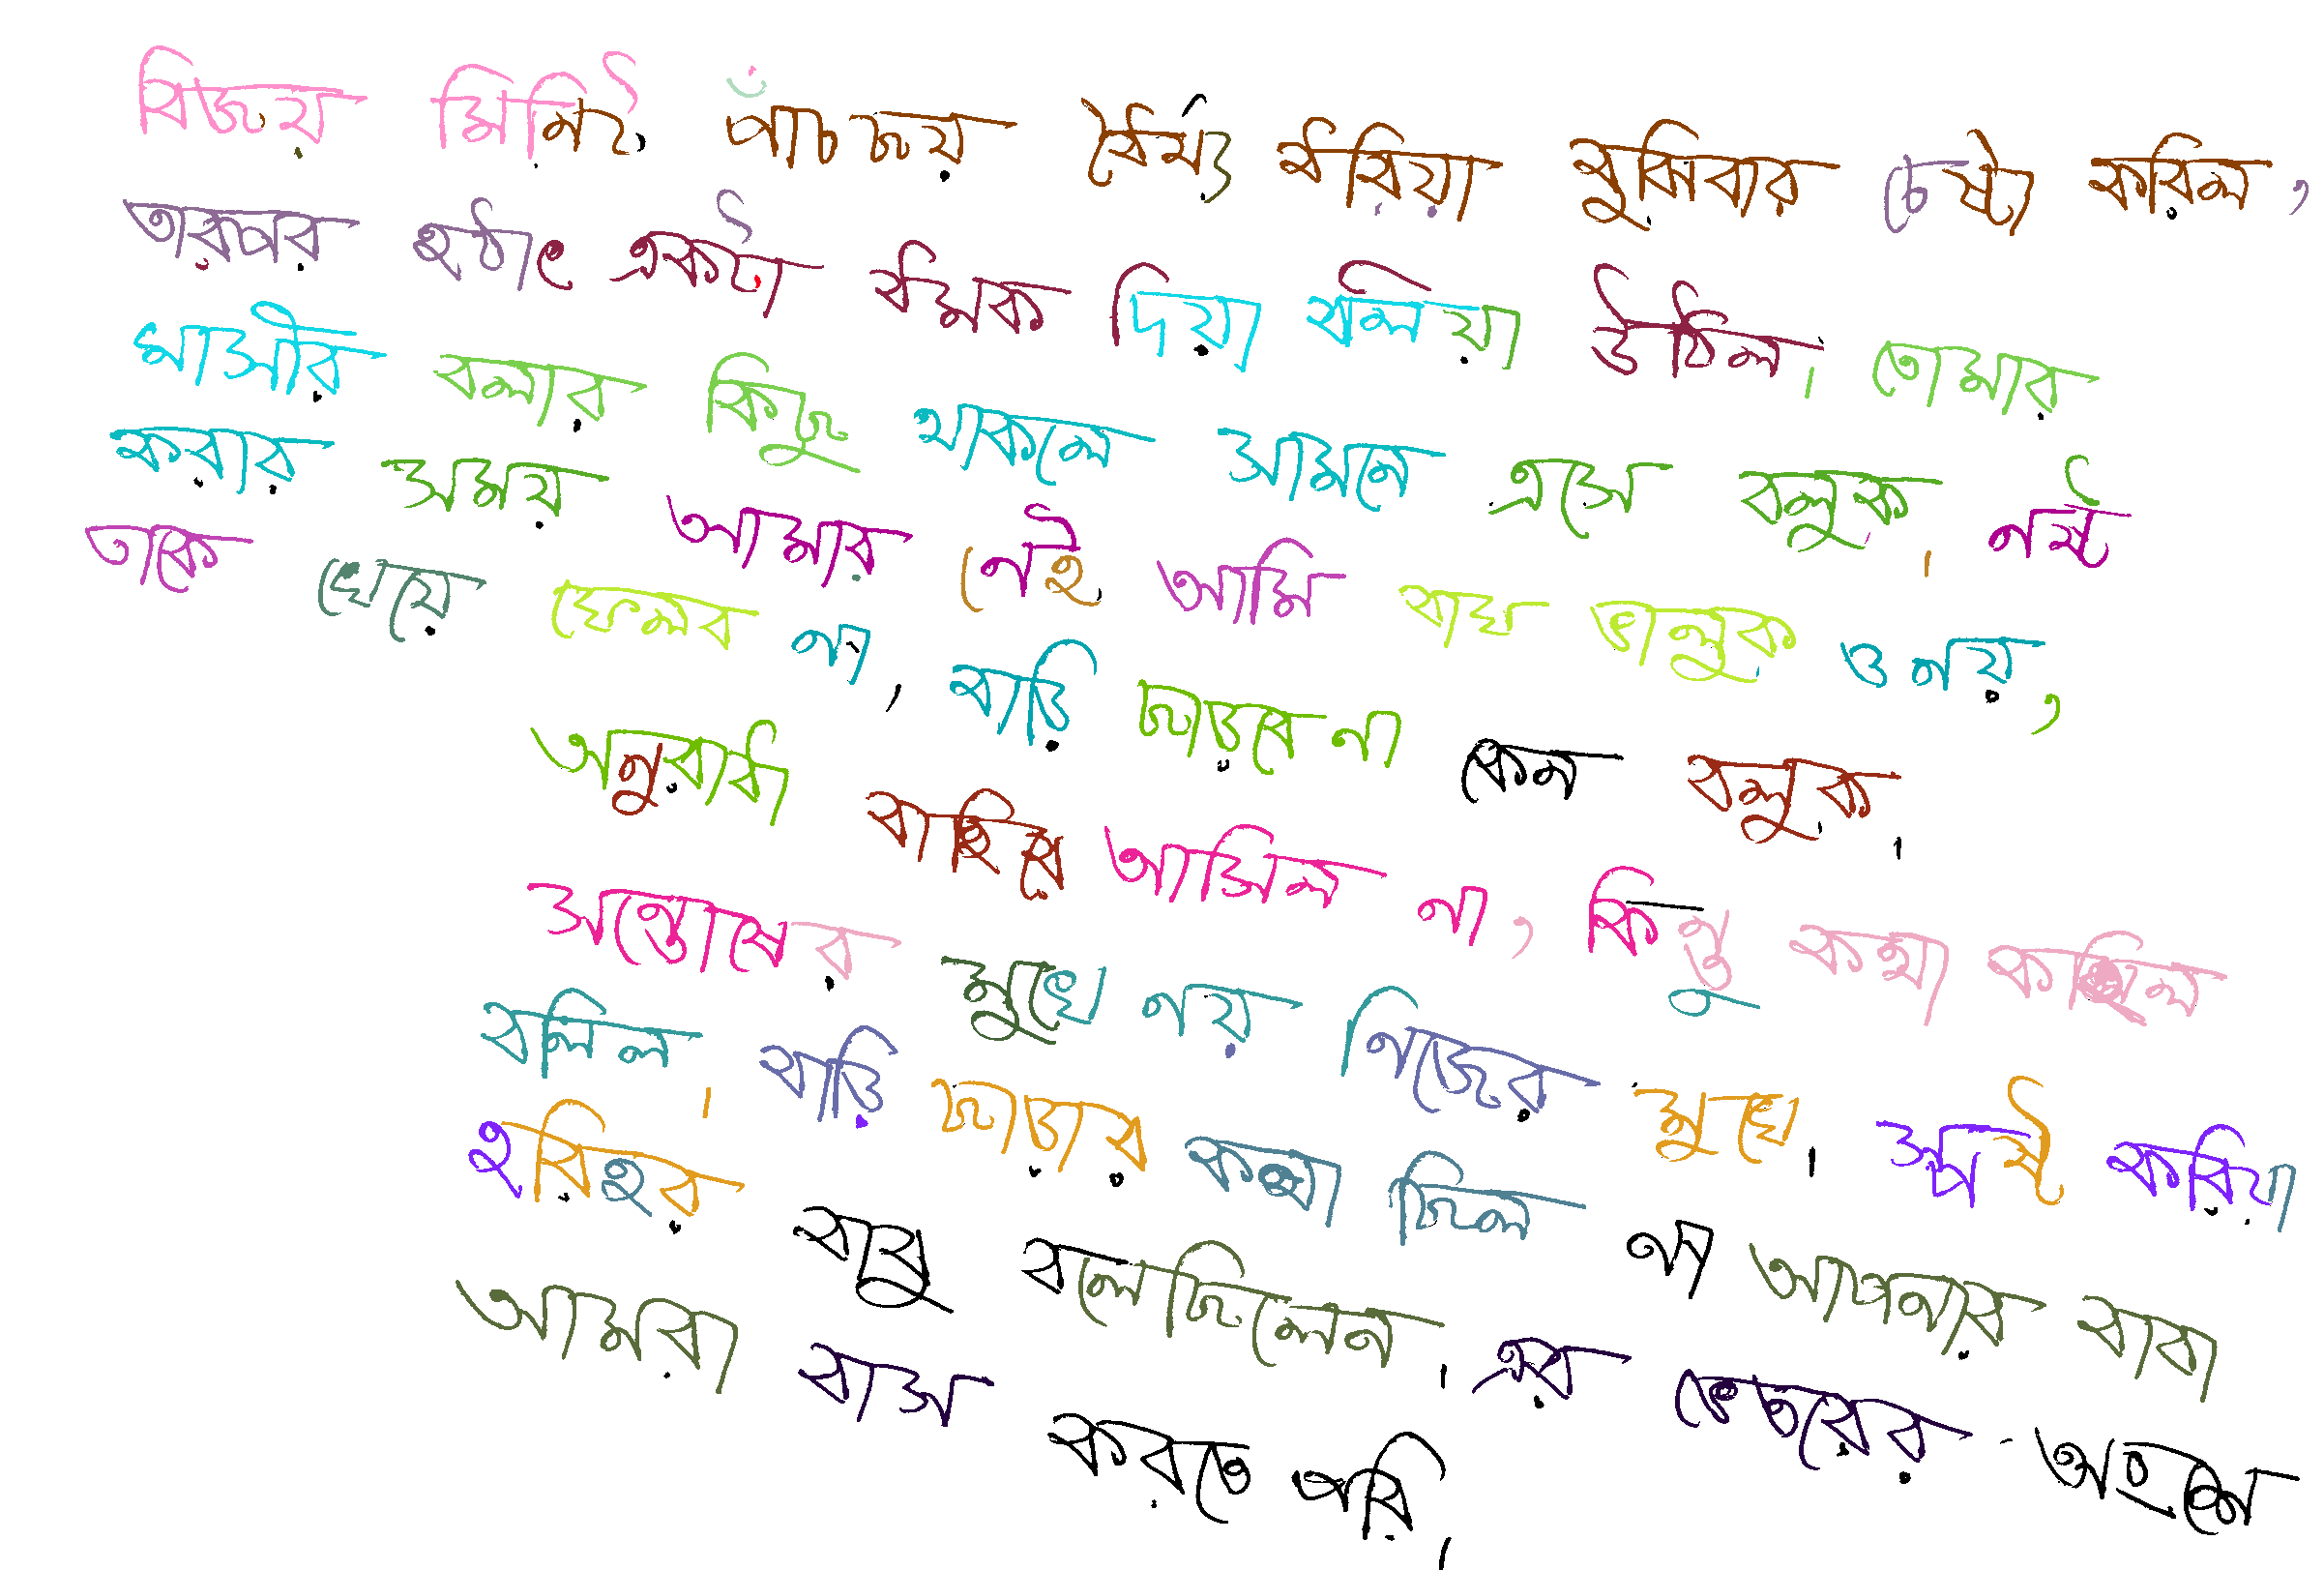 বিজয় মিনিট পাঁচছয় ধৈর্য্য ধরিয়া বুঝিবার চেষ্টা করিল,
তারপর হঠাৎ একটা ধমক দিয়া বলিয়া উঠিল। তোমার
মাসীর বলার কিছু থাকলে সামনে এসে বলুক। নষ্ট
করার সময় আমার নেই আমি বাঘ ভালুক ও নয়,
তাকে খেয়ে ফেলব না, বাড়ি ছাড়বে না কেন বলুক।
অনুরাধা বাহিরে আসিল না, কিন্তু কথা কহিল
সন্তোষের মুখে নয় নিজের মুখে। স্পষ্ট করিয়া
বলিল। বাড়ি ছাড়ার কথা ছিল না আপনার বাবা
হরিহর বাবু বলেছিলেন। এর ভেতরের অংশে
আমরা বাস করতে পারি।